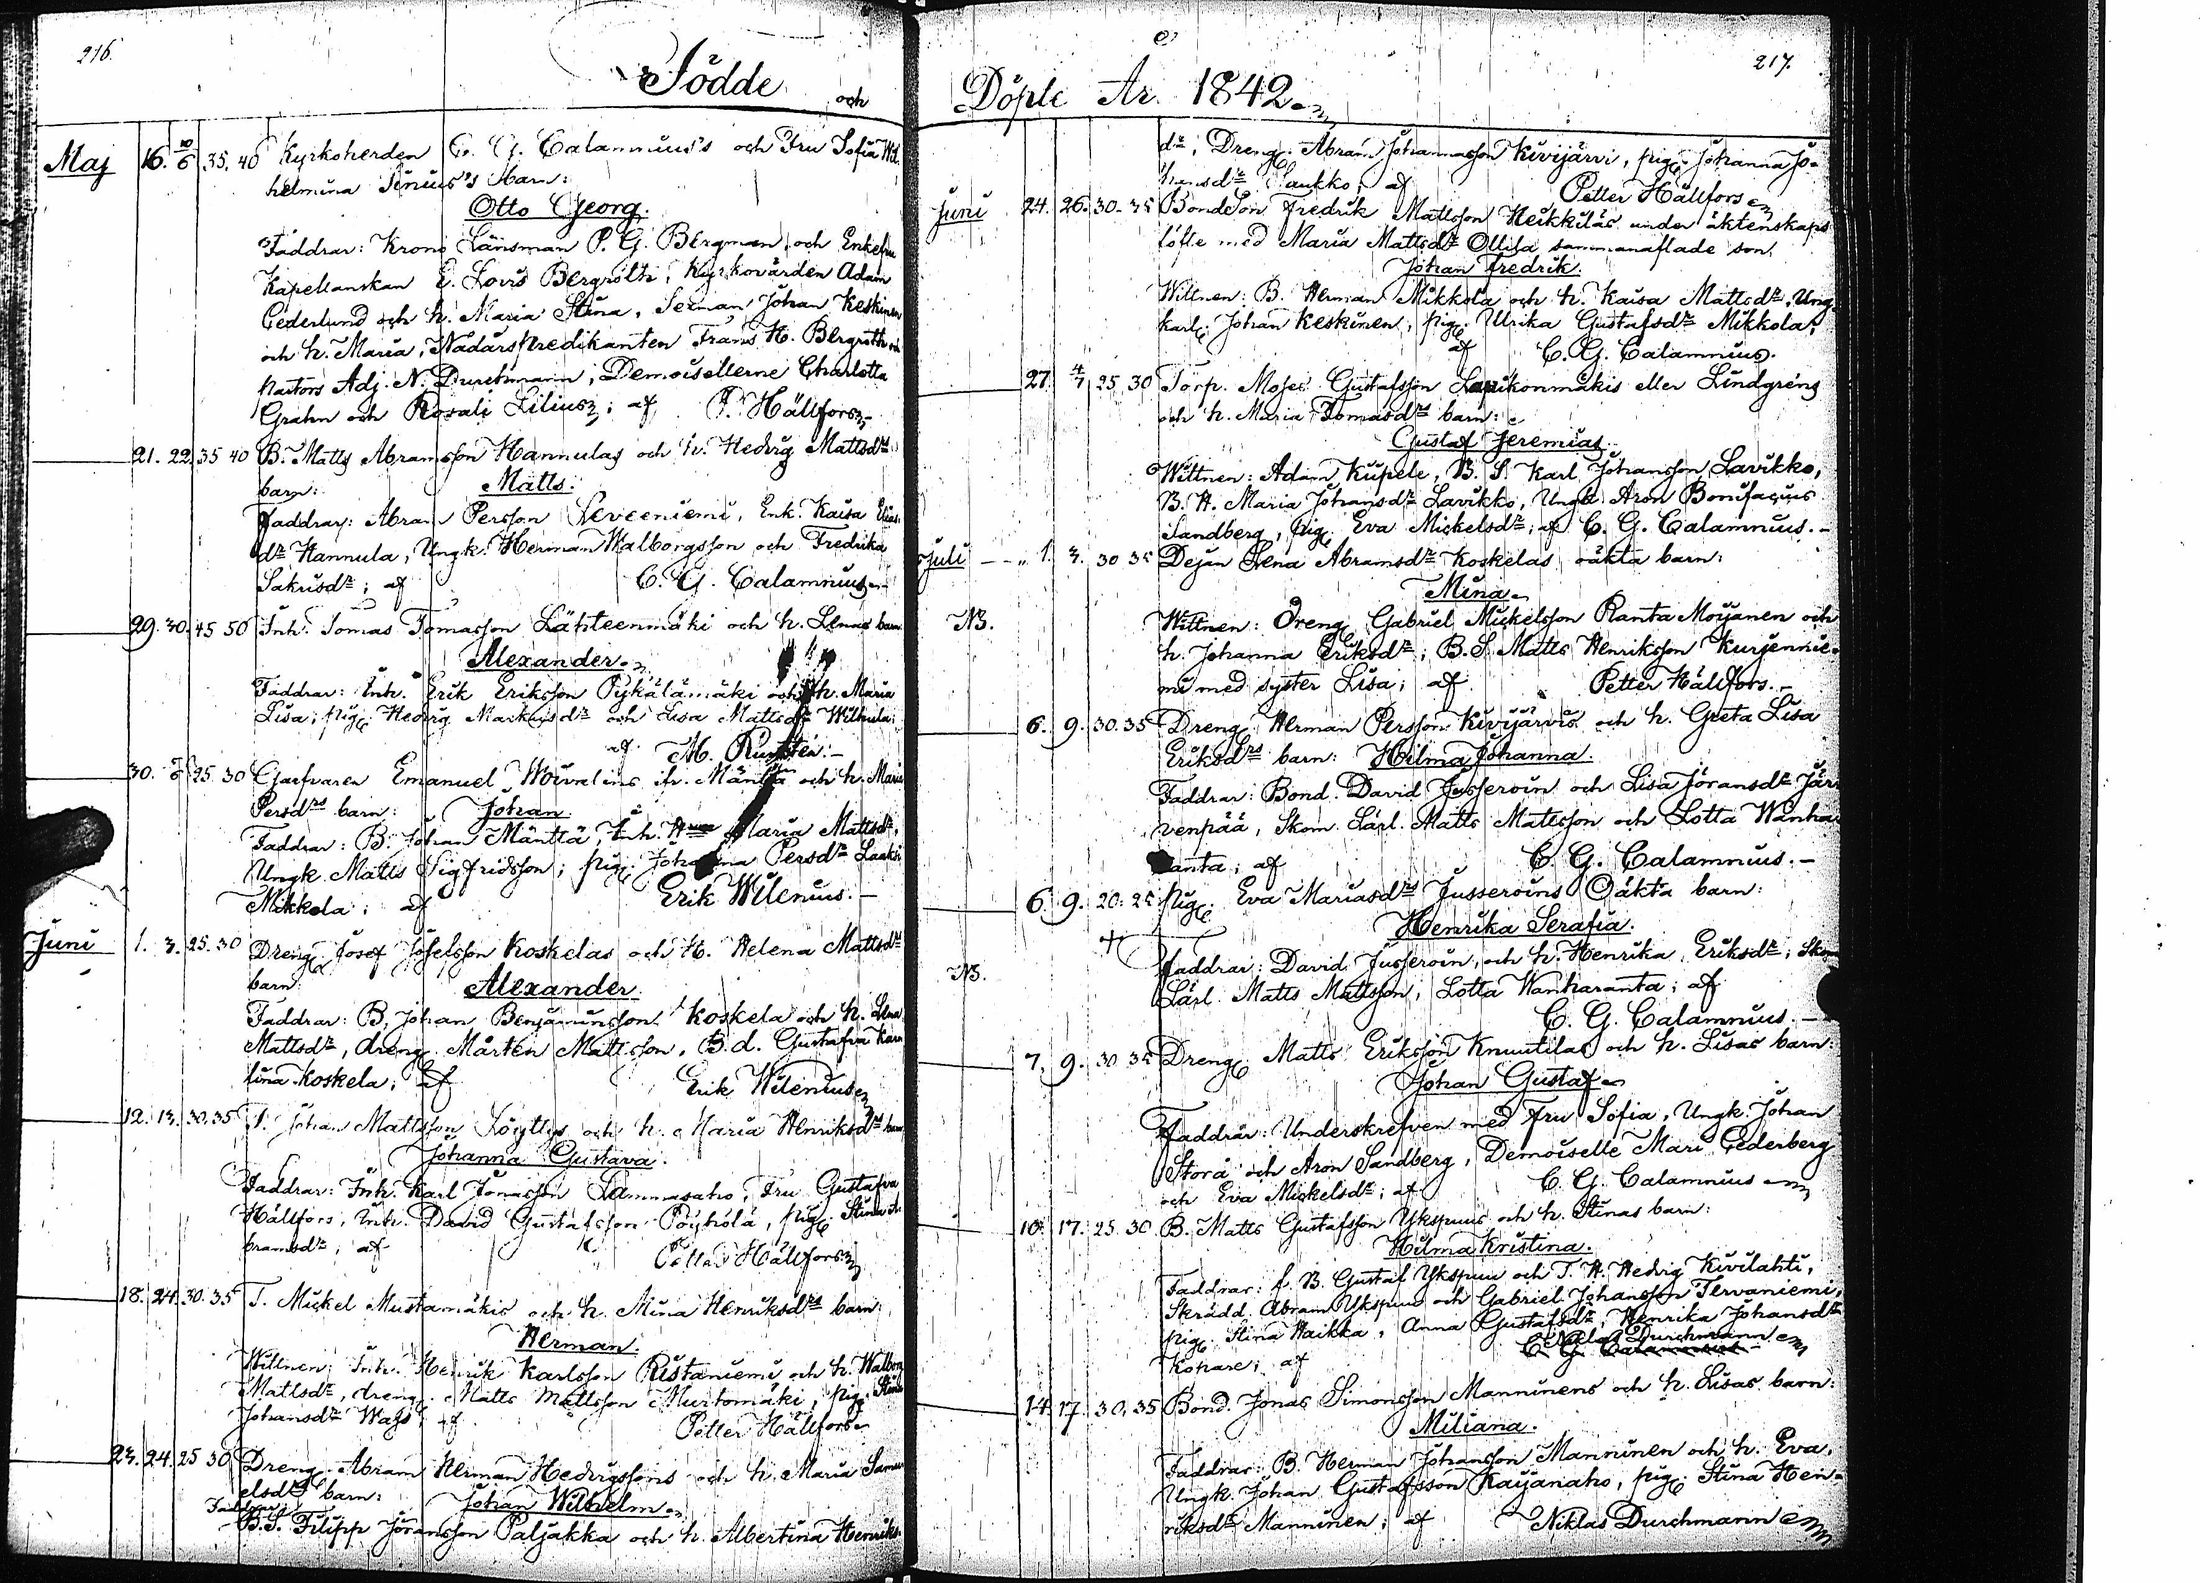 216.
Födde och
Maj 16. 10/6 35. 40 Kyrkoherden C. G. Calamnius's och Fru Sofia Wil-
helmina barn:
Otto Georg.
Faddrar: Krono Länsman P. G. Bergman och Enkefru
Kapellanskan E. Lovis Bergroth, Kyrkovärden Adam
Cederlund och h. Maria Stina, Seeman Johan Keskinen
och h. Maria, Nådårspredikanten Frans H. Bergroth och
Pastors Adj. N. Durchmann, Demoisellerne Charlotta
Grahn och Rosali Lilius; af P. Hällfors
21. 22. 35 40 B. Matts Abramsson Hannulas och h. Hedvig Mattsdrs
barn: Matts.
Faddrar: Abram Persson Leveeniemi, Enk. Kaisa Elias
dr Hannula, Ungk. Herman Walborgsson och Fredrika
Sakrisdr; af C. G. Calamnius
29. 30. 45 50 Inh. Tomas Tomasson Lähteenmäki och h. Lenas barn
Alexander
Faddrar: Inh. Erik Eriksson Pykälämäki och h. Maria
Lisa; pig. Hedvig Markusdr och Lisa Mattsdr
af M. Rustén.
30. 25 30 Garfvaren Emanuel fr. Mänttä och h. Maria
Persdrs barn: Johan.
Faddrar: B. Johan Mänttä, Inh. Maria Mattsdr,
Ungk. Matts Sigfridsson; pig. Johanna Persdr
Mikkola; af Erik Wilenius.
Juni 1. 3. 25. 30 Dreng. Josef Josefsson Koskelas och H. Helena Mattsdrs
barn: Alexander.
Faddrar: B. Johan Benjaminsson Koskela och h. Lena
Mattsdr, dreng. Mårten Mattsson, B.d. Gustafva Karo
lina Koskela; af Erik Wilenius
12. 13. 30. 35 T. Johan Mattsson Löyttys och h. Maria Henriksdrs barn
Johanna Gustava.
Faddrar: Inh. Karl Jonasson Lammasaho, Fru Gustafva
Hällfors, Inh. David Gustafsson Pöyhölä, pig. Stina A-
bramsdr; af Petter Hällfors
18. 24. 30. 35 T. Mickel Mustamäkis och h. Mina Henriksdrs barn:
Herman.
Wittnen: Inh. Henrik Karlsson Ristaniemi och h. Walborg
Mattsdr, dreng. Matts Mattsson Murtomäki, pig. Stina
Johansdr af Petter Hällfors
23. 24. 25 30 Dreng. Abram Herman Hedvigssons och h. Maria Samu
elsdrs barn: Johan Wilhelm
Faddrar:
B.S. Filipp Jöransson Paljakka och h. Albertina Henriks-
217.
Döpte År 1842
dr, Dreng. Abram Johannasson Kivijärvi, pig. Johanna Jo-
hansdr Saukko; af Petter Hällfors
Juni 24. 26. 30. 35 Bonde Son Fredrik Mattsson Heikkiläs under äktenskaps
löfte med Maria Mattsdr Ollila sammanaflade son,
Johan Fredrik.
Wittnen: B. Herman Mikkola och h. Kaisa Mattsdr, Ung-
karl. Johan Keskinen, pig. Ulrika Gustafsdr Mikkola;
af C. G. Calamnius.
27. 4/7 25 30 Torp. Moses Gustafsson Lapikonmäkis eller Lindgrens
och h. Maria Tomasdrs barn:
Gustaf Jeremias
Wittnen: Adam Kiipele, B. S. Karl Johansson Lavikko,
B. H. Maria Johansdr Lavikko, Ungk. Aron Bonifacius
Sandberg, pig. Eva Mickelsdr; af C. G. Calamnius.
Juli 1. 3. 30 35 Dejan Lena Abramsdr Koskelas oäkta barn:
Mina
NB. Wittnen: Dreng Gabriel Mickelsson Ranta Moijanen och
h. Johanna Eriksdr; B. S. Matts Henriksson Kurjennie-
mi med syster Lisa; af Petter Hällfors.
6. 9. 30. 35 Dreng. Herman Persson Kivijärvis och h. Greta Lisa
Eriksdrs barn: Hilma Johanna.
Faddrar: Bond. David Jusseroin och Lisa Jöransdr Jär-
venpää, Skom. Lärl. Matts Matsson och Lotta Wanha
ranta; af C. G. Calamnius.
6. 9. 20. 25 Pig. Eva Mariasdrs Jusseroins Oäkta barn:
Henrika Serafia.
NB. Faddrar: David Jusseroin, och h. Henrika Eriksdr; Skom
Lärl. Matts Mattsson, Lotta Wanharanta; af
C. G. Calamnius.
7. 9. 30 35 Dreng. Matts Eriksson Knuutilas och h. Lisas barn:
Johan Gustaf
Faddrar: Underskrefven med Fru Sofia, Ungk. Johan
Stora och Aron Sandberg, Demoiselle Mari Cederberg
och Eva Mickelsdr; af C. G. Calamnius
10. 17. 25 30 B. Matts Gustafsson Ykspuus och h. Stinas barn:
Hilma Kristina.
Faddrar: f. B. Gustaf Ykspuu och T. H. Hedvig Kivilahti,
Skrädd. Abram Ykspuu och Gabriel Johansson Tervaniemi,
pig. Stina Haikka, Anna Gustafsdr, Henrika Johansdr
Kopare; af Niclas Durchmann
C. G. Calamnius
14. 17. 30. 35 Bond. Jonas Simonsson Manninens och h. Lisas barn:
Miliana.
Faddrar: B. Herman Johansson Manninen och h. Eva,
Ungk. Johan Gustafsson Kaijanaho, pig. Stina Hen-
riksdr Manninen; af Niklas Durchmann